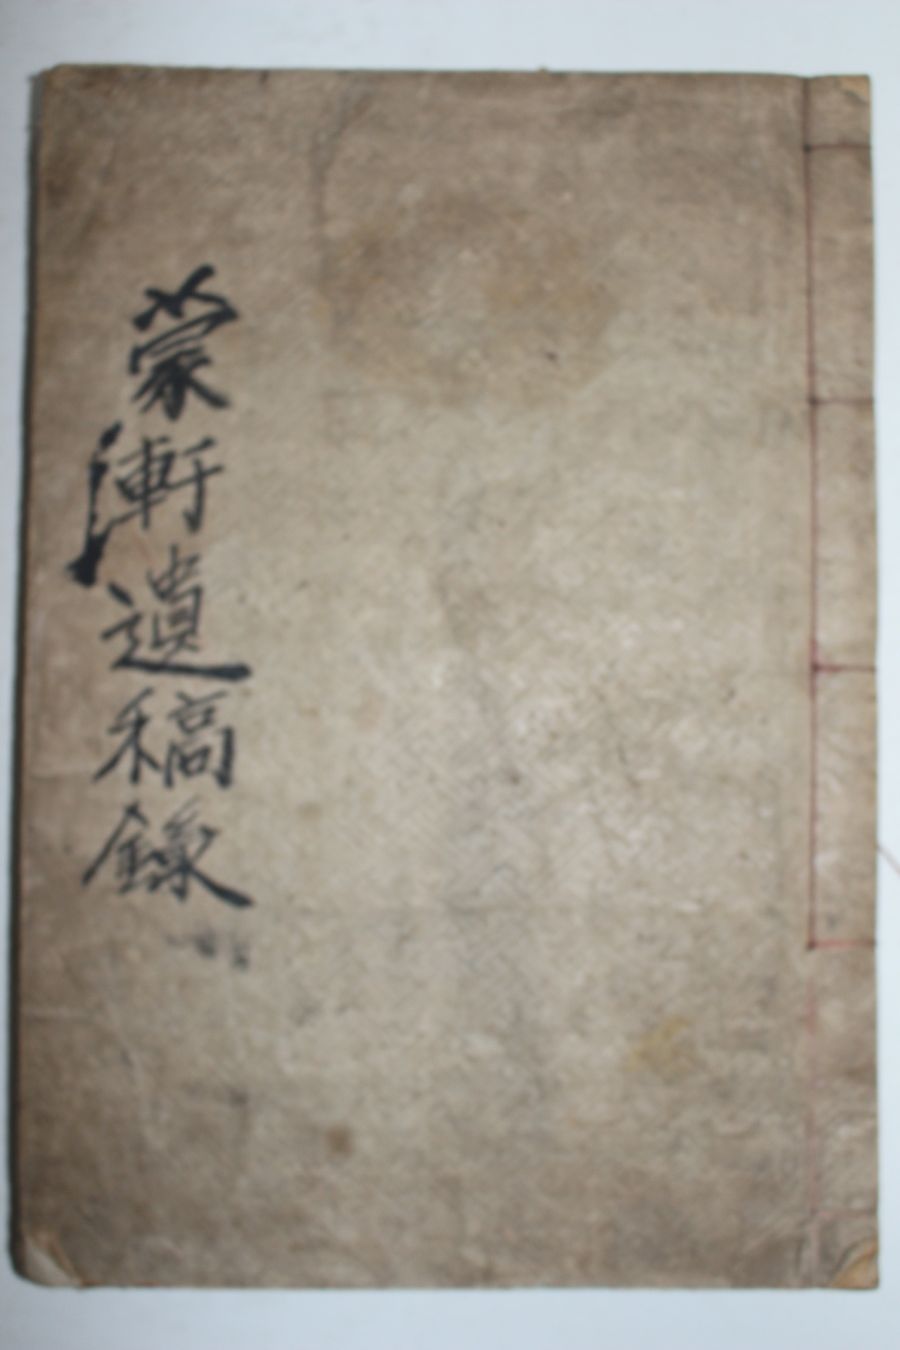 蒙軒遺稿錄